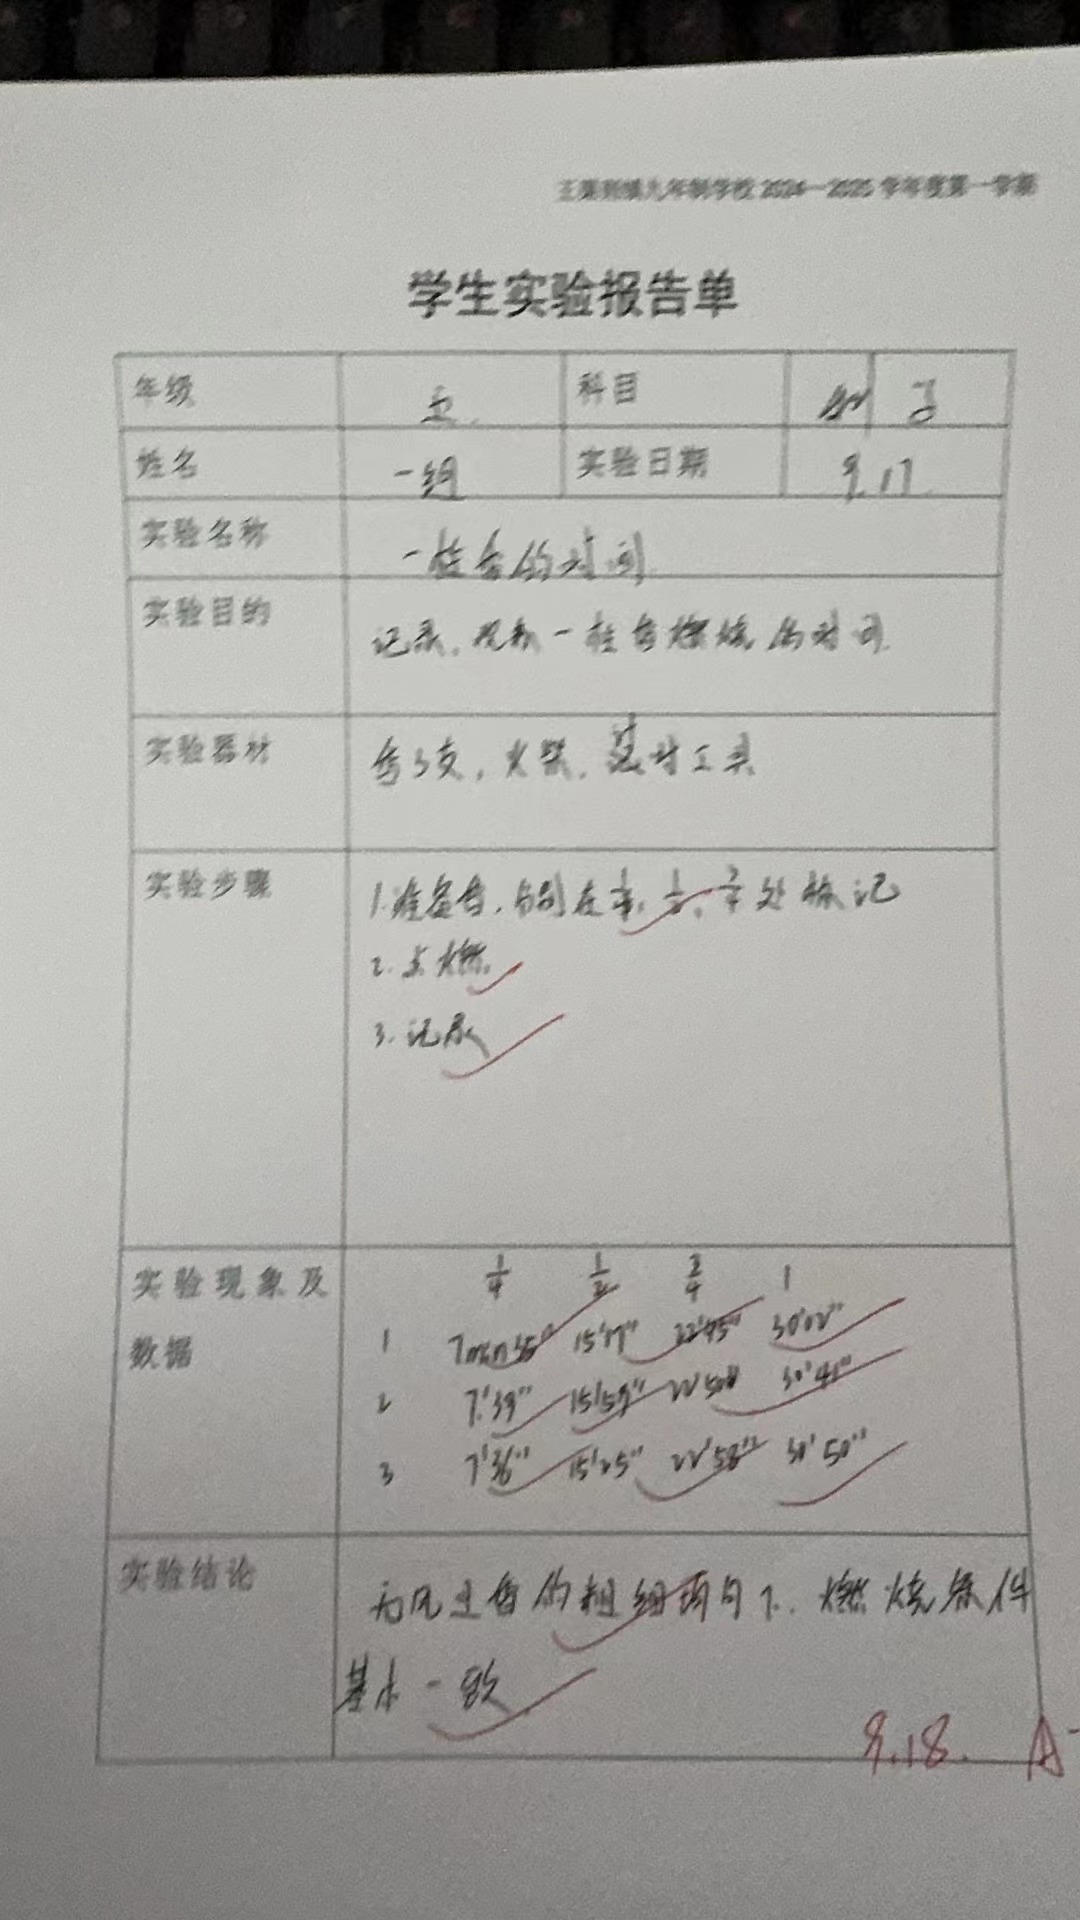 九年制学校2024—2025学年度第一学期
学生实验报告单
年级 五 科目 科学
姓名 一组 实验日期 9.17
实验名称 一柱香的时间
实验目的 记录、观察一柱香燃烧的时间
实验器材 香3支，火柴，计时工具
实验步骤 1.准备香，分别在1/4、1/2、3/4处标记
2.点燃
3.记录
实验现象及 1/4 1/2 3/4 1
数据 1 7min35" 15'17" 22'45" 30'02"
2 7'39" 15'59" 22'50" 30'41"
3 7'36" 15'25" 22'58" 30'50"
实验结论 无风且香的粗细 燃烧条件
基本一致
9.18. A